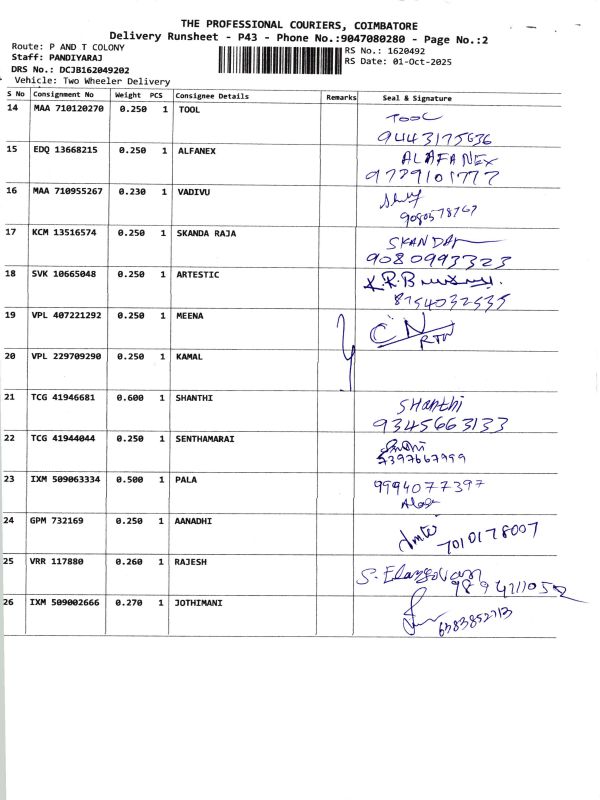 THE PROFESSIONAL COURIERS, COIMBATORE
Delivery Runsheet - P43 - Phone No.:9047080280 - Page No.:2
Route: P AND T COLONY
RS No.: 1620492
Staff: PANDIYARAJ
RS Date: 01-Oct-2025
DRS No.: DCJB162049202
Vehicle: Two Wheeler Delivery
S No Consignment No Weight PCS Consignee Details Remarks Seal & Signature
14 MAA 710120270 0.250 1 TOOL TOOL
9443175636
15 EDQ 13668215 0.250 1 ALFANEX ALAFANEX
9729101777
16 MAA 710955267 0.230 1 VADIVU
9080578767
17 KCM 13516574 0.250 1 SKANDA RAJA SKANDA
9080993323
18 SVK 10665048 0.250 1 ARTESTIC K.R.B
8754032535
19 VPL 407221292 0.250 1 MEENA CN
RTN
20 VPL 229709290 0.250 1 KAMAL
21 TCG 41946681 0.600 1 SHANTHI Shanthi
9345663133
22 TCG 41944044 0.250 1 SENTHAMARAI
7397667999
23 IXM 509063334 0.500 1 PALA 9994077397
24 GPM 732169 0.250 1 AANADHI
7010178007
25 VRR 117880 0.260 1 RAJESH S. Elangovan
9894211052
26 IXM 509002666 0.270 1 JOTHIMANI
6383852713